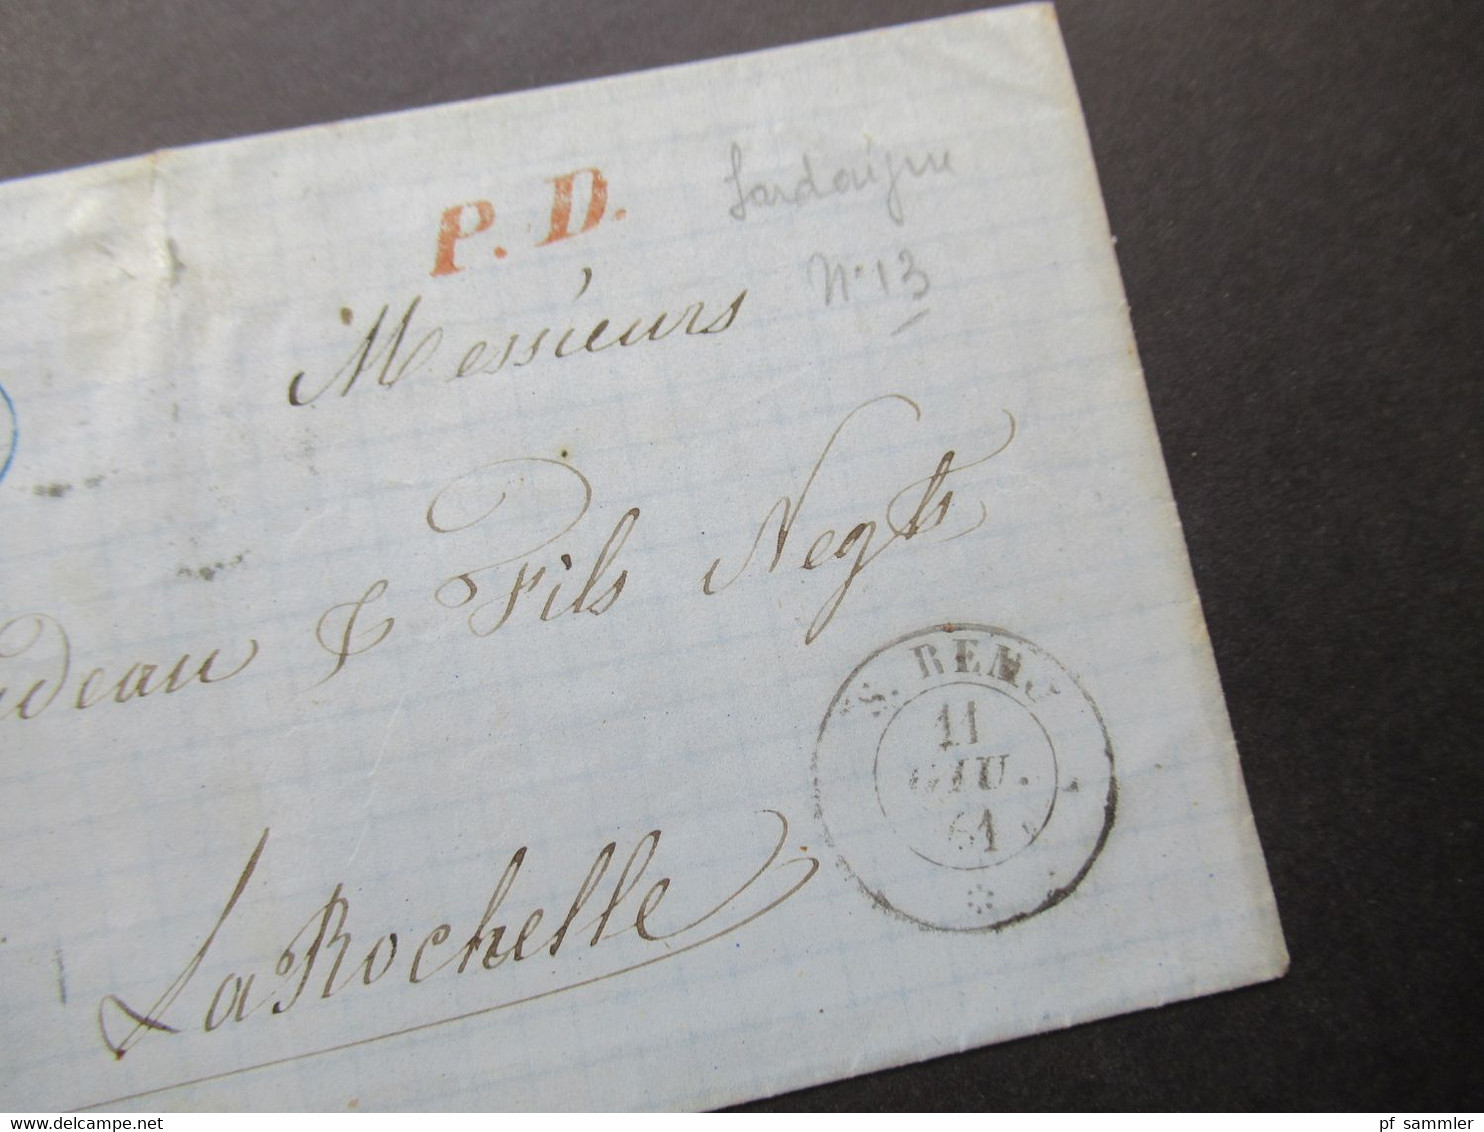 P. D.
Sardaigne
N° 13
Messieurs
deau & Fils Negts
La Rochelle
S. REMO
11
GIU.
61
www.delcampe.net
pf_sammler